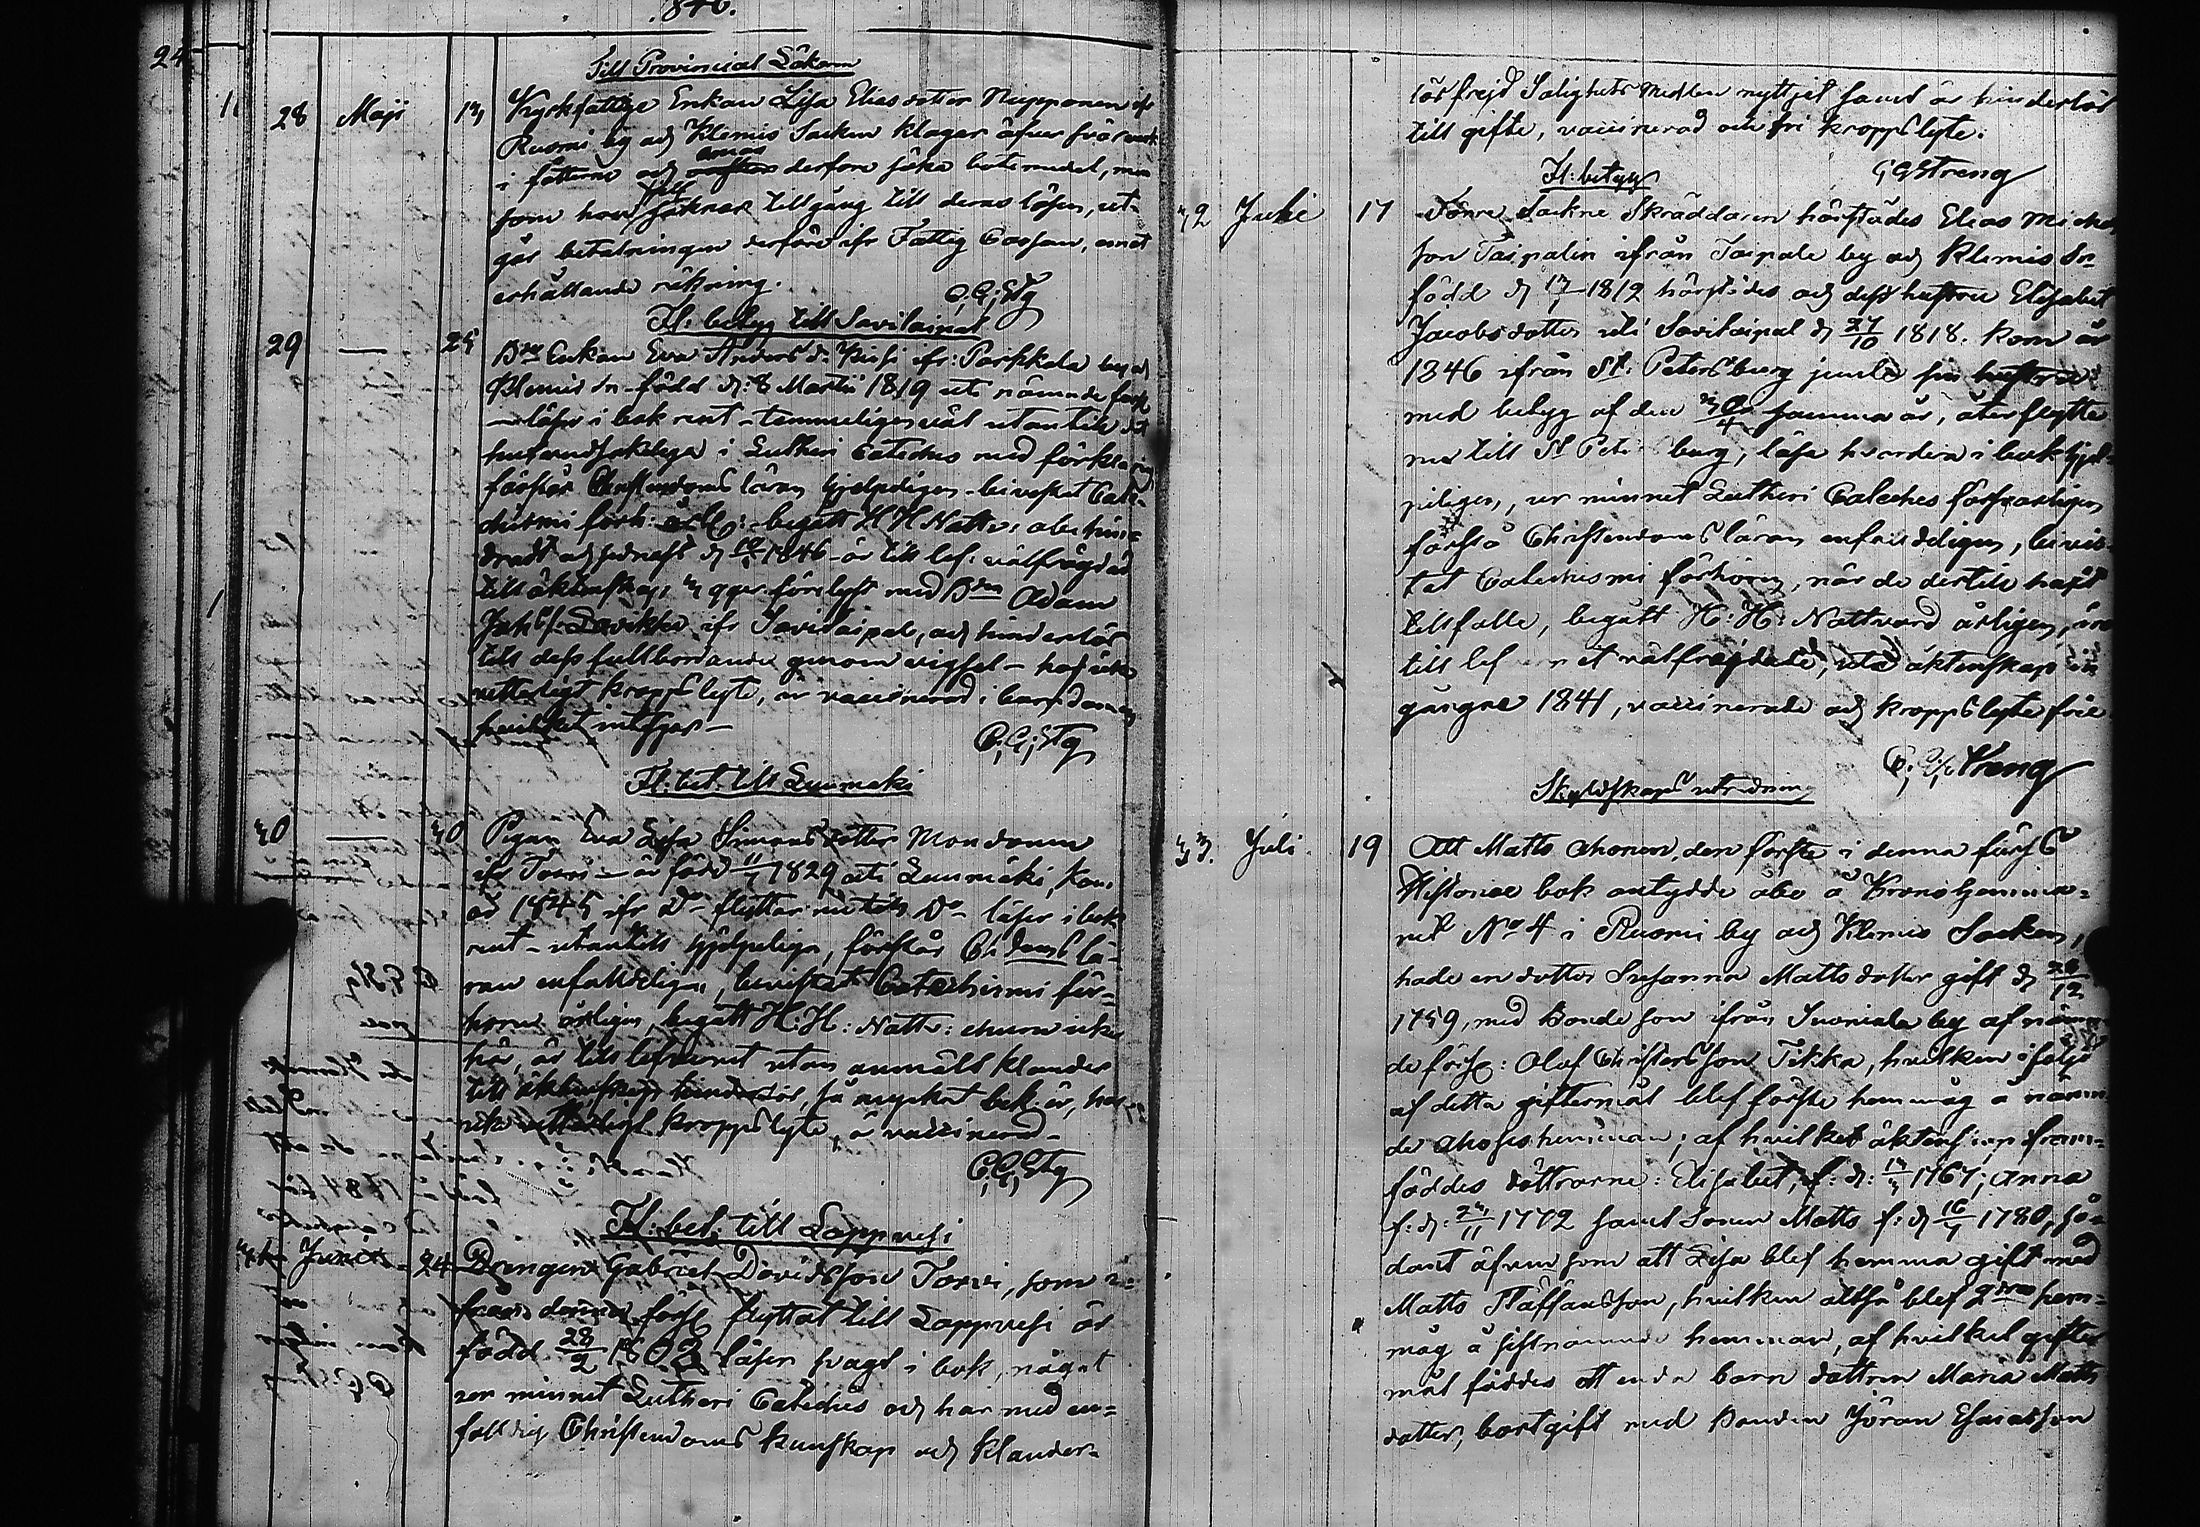 1846.
24
Till Provincial Läkaren
28 Maji 13 Kyrkfattige Enkan Lisa Eliasdotter Nupponen ifr
Ruomi by och Klemis Socken klagar öfver svår verk
i fötterne och ernar derfore söka botemedel, men
som hon sjelf saknar tillgång till deras lösen, ut-
går betalningen derföre ifr Fattig Cassan, emot
erhållande räkning.
C.G. Stg
Fl: betyg till Savitaipal
29 — 25 Bde Enkan Eva Anders dr ifr: Parkkala by och
Klemis Sn född d: 8 Martii 1819 uti nämnde förs:
läser i bok rent temmeligen väl utantill det
hufvudsakliga i Lutheri Cateches med förklaring
förstår Christendoms läran hjelpeligen bevistat Cate-
chismi förh: årl: begått H H Nattv:
1846 är till lef: välfrägdad
till äktenskap 3 ggr förelyst med Bden Adam
ifr Savitaipal, och hinderlös
till dess fullbordande genom vigsel – har icke
vetterligt kroppslyte, är vaccinerad i barndomen
hvilket intygas –
C.G. Stg
Fl: bet. till Luumäki
30 — 30 Pigan Eva Lisa Simonsdotter Mondonen
ifr Torvi – är född 11/7 1829 uti Luumäki, kom
år 1845 ifr do flyttar nu till do läser i bok
rent – utantill hjelpelign, förstår Ch:doms lä-
ran enfalldelign, bevistat Catechismi för-
hören årligen, begått H: H: Nattv:
här, är till lefvernet utan anmält klander
till äktenskap hinderlös, så mycket bek: är, har
icke vetterligt kroppslyte, är vaccinerad –
C.G. Stg
Fl: bet: till Lappvesi
31 Junii 24 Drengen Gabriel Davidsson Torvi, som i-
från denna förs: flyttat till Lappvesi är
född 28/2 1803 läser svagt i bok, något
ur minnet Lutheri Catechis och har med en-
faldig Christendoms kunskap och klander-
lös frejd Salighets Medlen nyttjat samt är hinderlös
till gifte, vaccinerad och fri kroppslyte.
C G Streng
Fl: betyg
32 Julii 17 Sockne Skräddaren härstädes Elias Michels
son Taipalin ifrån Taipale by och Klemis Sn
född d 17/7 1812 härstädes och dess hustru Elisabet
Jacobsdotter uti Savitaipal d 27/10 1818. kom år
1846 ifrån St: Petersburg jemte sin hustru
med betyg af den 30/4 samma år, återflytta
nu till St Petersburg, läsa hvardera i bok hjel-
peligen, ur minnet Lutheri Cateches försvarligen
förstå Christendoms läran enfaldeligen, bevis-
tat Catechismi förhören, när de dertill haft
tillfälle, begått H: H: Nattvard årligen, äro
till lefvernet välfrejdade, uti äktenskap in-
gångne 1841, vaccinerade och kroppslyte frie
C. G. Streng
Skyldskaps utredning
33. Juli. 19 Att Matts Mononen, den förste i denna förs:s
Historiae bok antydde åbo å Krono hemma-
net No 4 i Ruomi by och Klemis Socken,
hade en dotter Susanna Mattsdotter gift d 26/12
1759, med Bonde son ifrån Suoniala by af nämn-
de förs: Olof Christersson Tikka, hvilken i följe
af detta giftermål blef förste hemmåg å nämn-
de hemman; af hvilket äktenskap fram-
föddes döttrarne: Elisabet, f: d: 13/3 1767; Anna
f: d: 23/11 1772 samt Sonen Matts f: d 16/7 1780, så-
dant äfven som att Lisa blef hemma gift med
Matts Staffansson, hvilken altså blef 2dre hem-
måg å sistnämnde hemman, af hvilket gifter-
mål föddes ett enda barn dottren Maria Matts
dotter, bortgift med Bonden Jöran Esaiasson